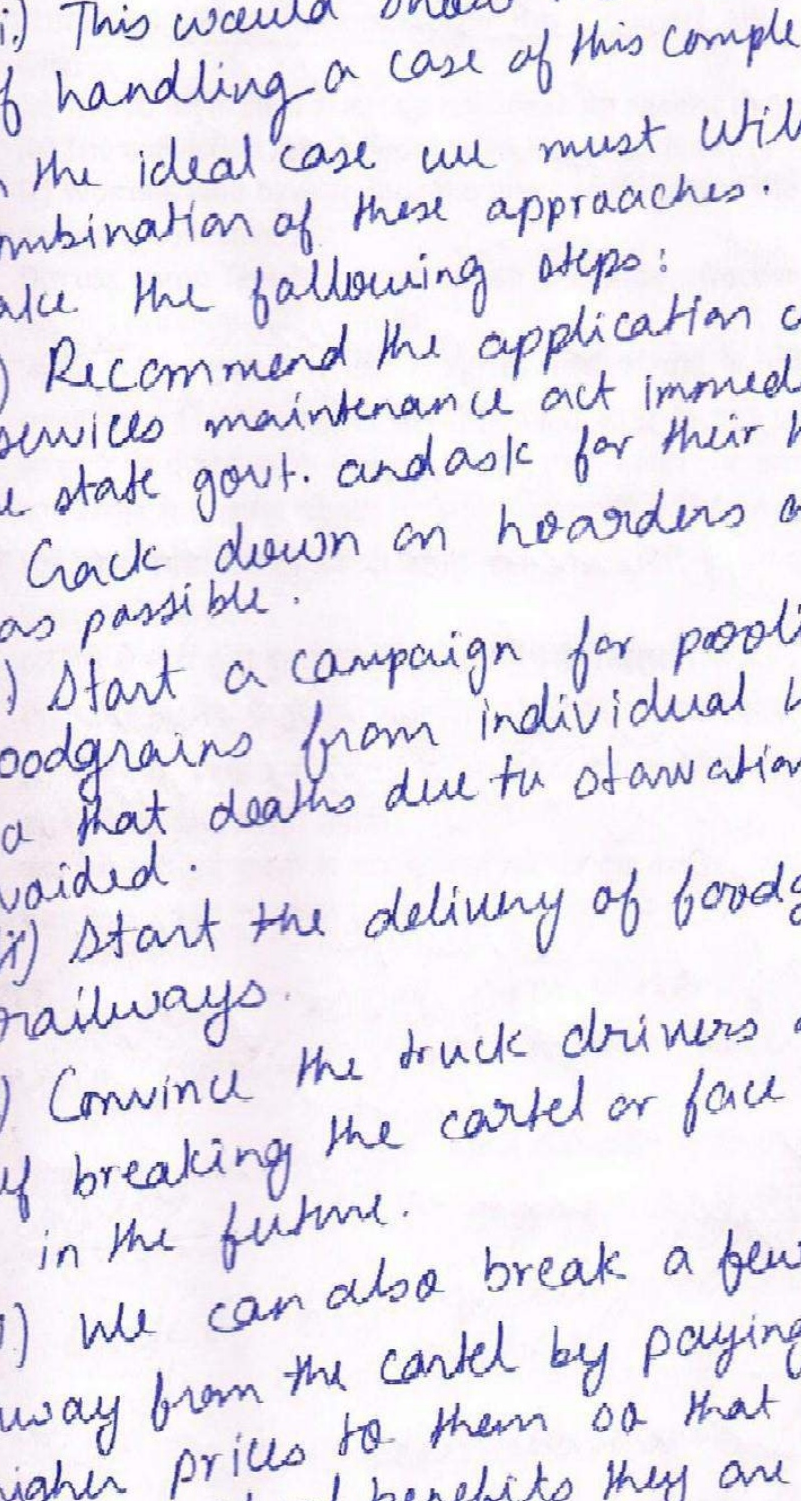 i.) This would
f handling a case of this comple
the ideal case we must util
ombination of these approaches.
ake the following steps:
) Recommend the application
services maintenance act immed
e state govt. and ask for their h
Crack down on hoarders
as possible.
) Start a campaign for pooli
oodgrains from individual h
o that deaths due to starvation
voided.
ii) Start the delivery of foodg
railways.
) Convince the truck drivers
of breaking the cartel or face
in the future.
) We can also break a few
way from the cartel by paying
higher prices to them so that
benefits they are